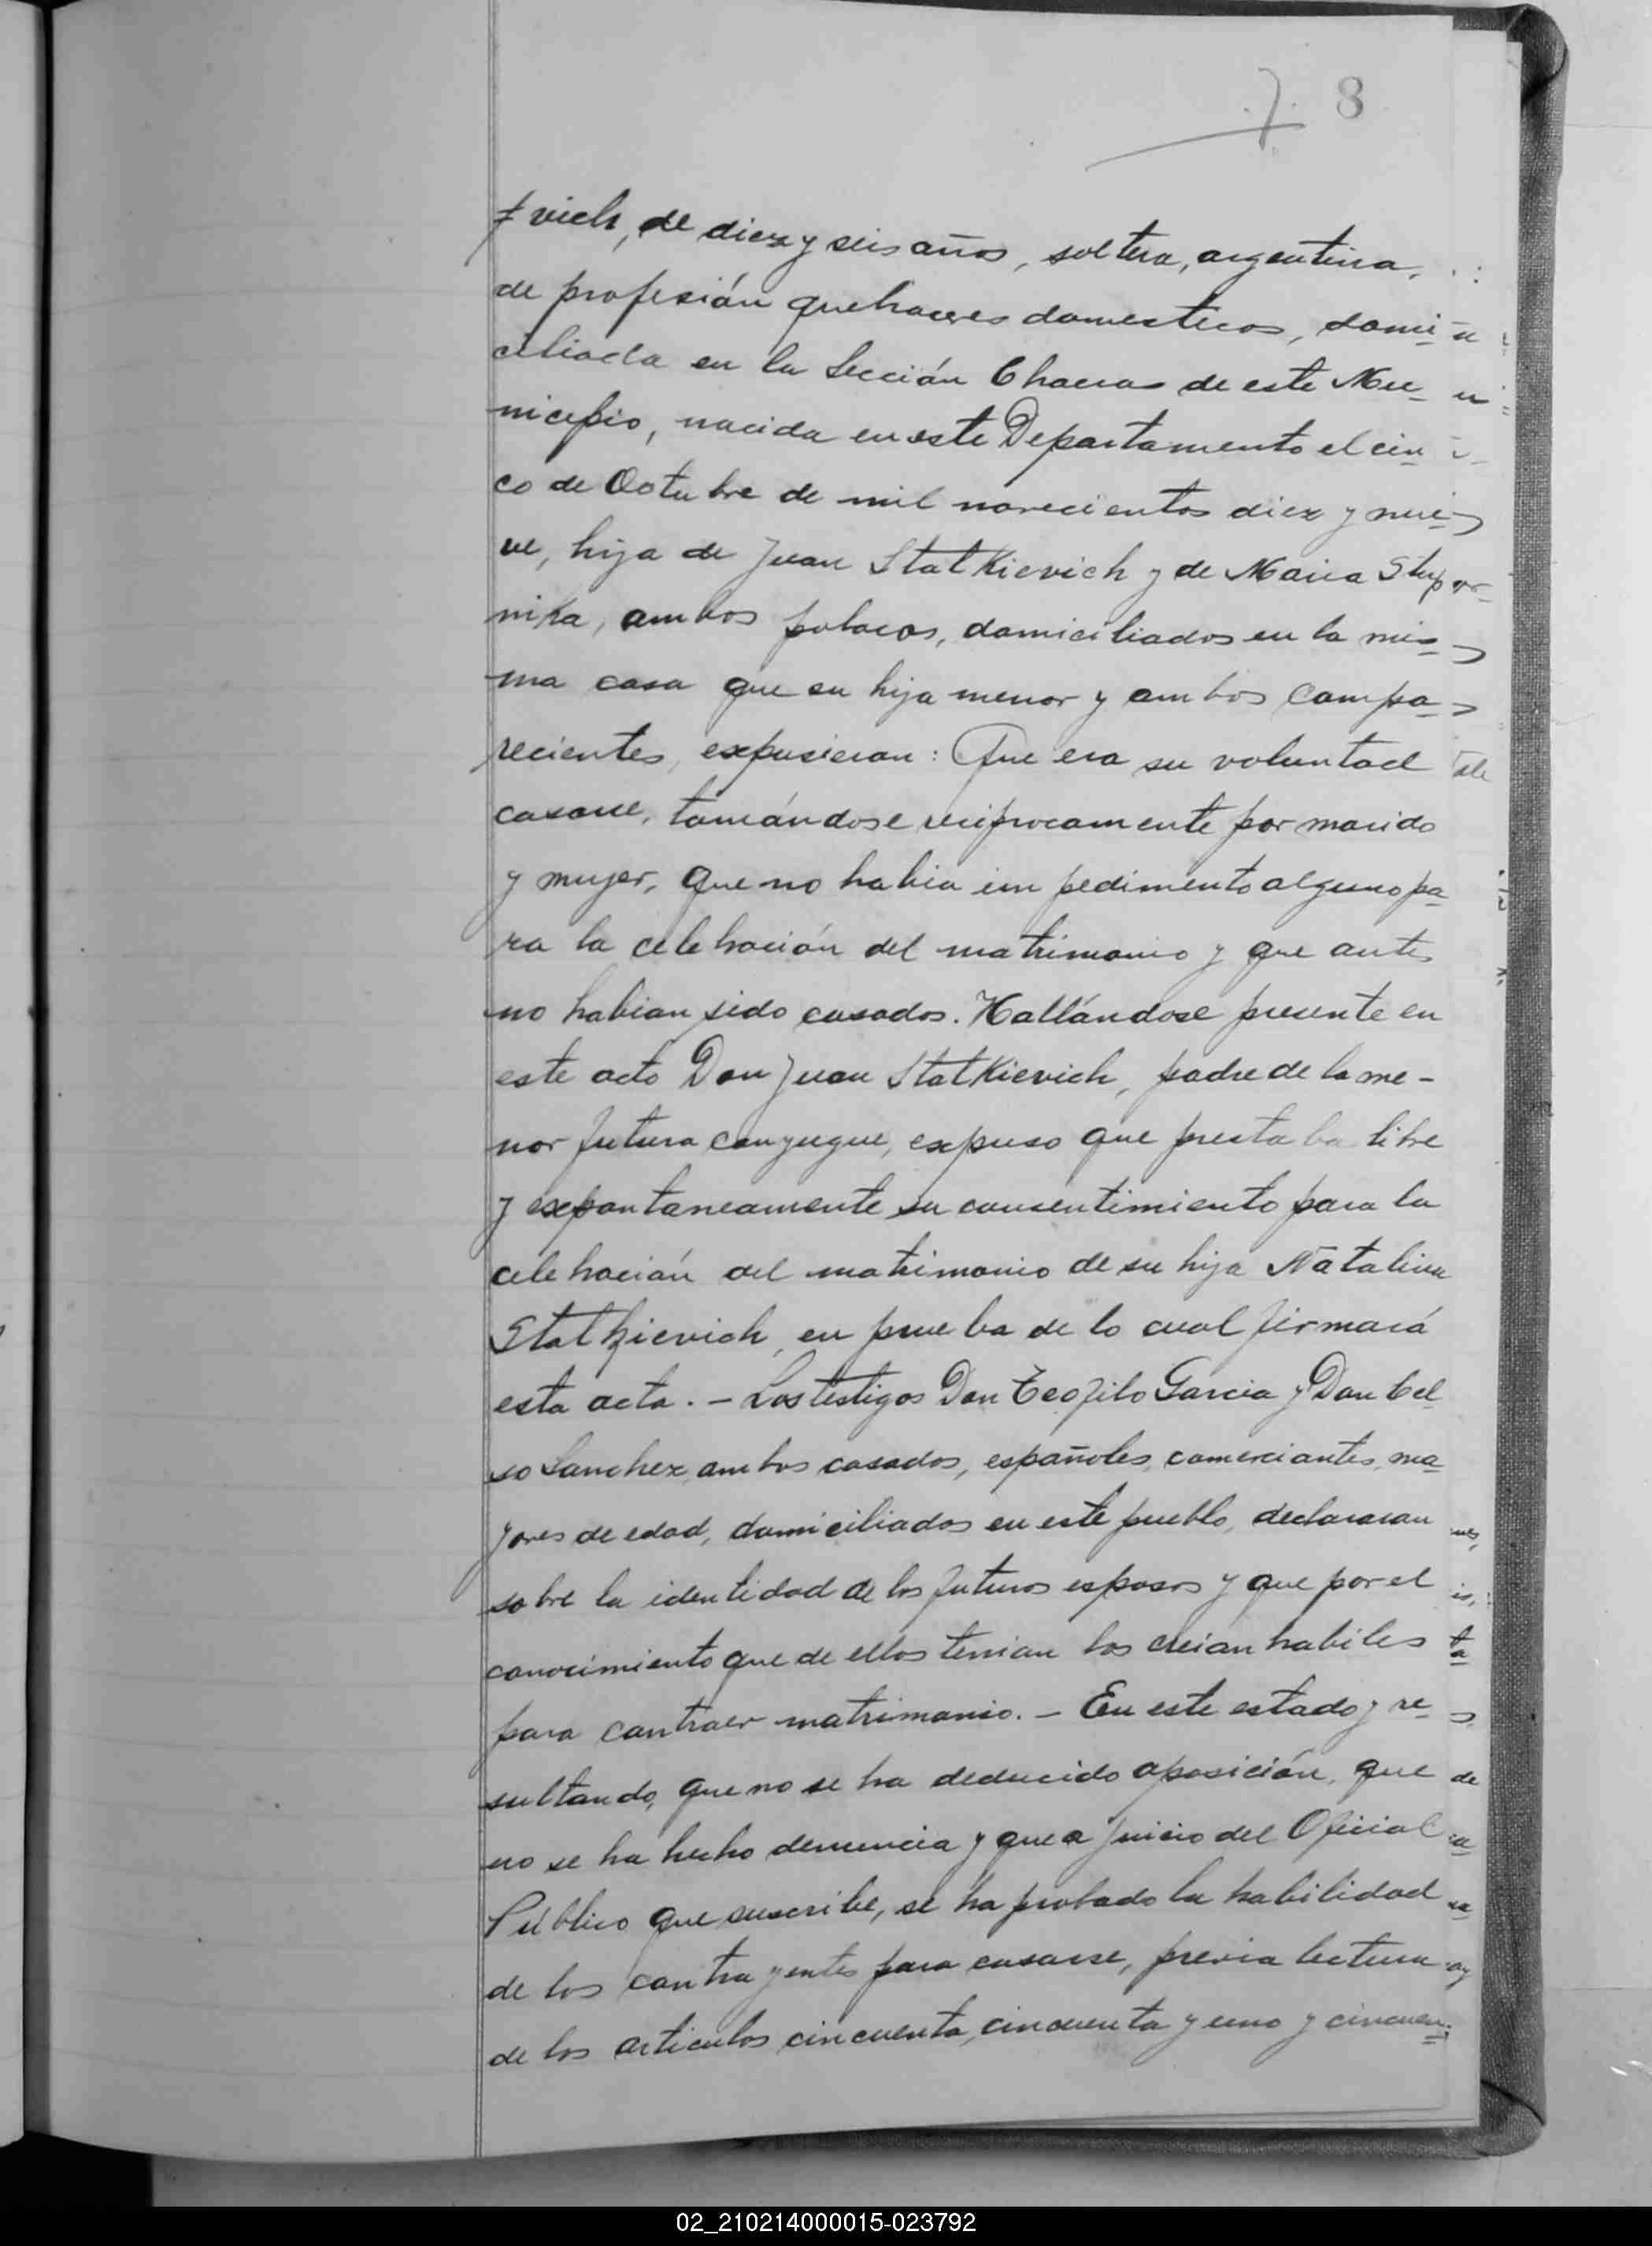 .7. 8
vich, de diez y seis años, soltera, argentina,
de profesión quehaceres domesticos, domi-
ciliada en la Sección Chacras de este Mu-
nicipio, nacida en este Departamento el cin-
co de Octubre de mil novecientos diez y nue-
ve, hija de Juan Statkievich y de Maria Stupar-
nika, ambos polacos, domiciliados en la mis-
ma casa que su hija menor y ambos compa-
recientes, expusieron: Que era su voluntad
casarse, tomándose reciprocamente por marido
y mujer, que no habia impedimento alguno pa-
ra la celebración del matrimonio y que antes
no habian sido casados. Hallándose presente en
este acto Don Juan Statkievich, padre de la me-
nor futura conyugue, expuso que prestaba libre
y expontaneamente su consentimiento para la
celebración del matrimonio de su hija Natalina
Statkievich, en prueba de lo cual firmará
esta acta. - Los testigos Don Teofilo Garcia y Don Cel-
so Sanchez, ambos casados, españoles, comerciantes, ma-
yores de edad, domiciliados en este pueblo, declararon
sobre la identidad de los futuros esposos y que por el
conocimiento que de ellos tenian los creian habiles
para contraer matrimonio. - En este estado y re-
sultando, que no se ha deducido oposición, que
no se ha hecho denuncia y que a juicio del Oficial
Público que suscribe, se ha probado la habilidad
de los contrayentes para casarse, previa lectura
de los articulos cincuenta, cincuenta y uno y cincuen-
02_210214000015-023792